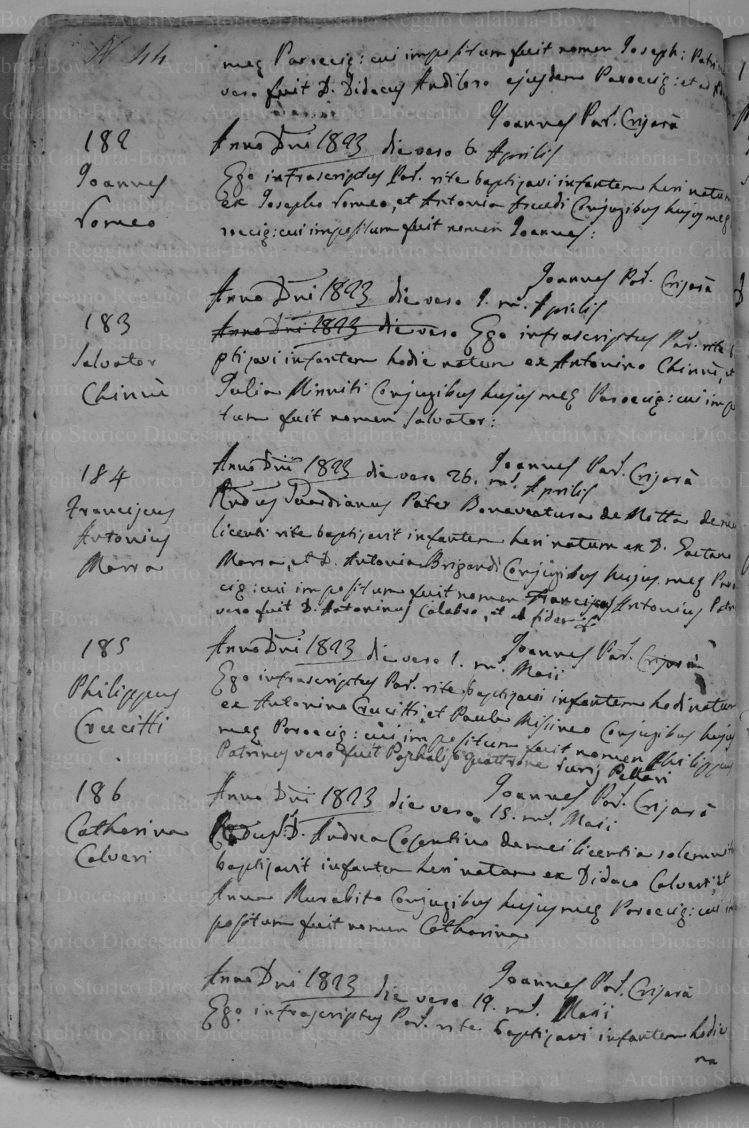 N 44
meę Paroecię: cui impositum fuit nomen Joseph: Patri
vero fuit D. Didacus Andiloro ejusdem Paroecię: et
Joannes Par. Crisarà
182
Joannes
Romeo
Anno Dni 1823 die vero 6 Aprilis
Ego infrascriptus Par. rite baptizavi infantem heri natum
ex Josepho Romeo, et Antonia Conjugibus hujus meę
roecię: cui impositum fuit nomen Joannes:
Joannes Par. Crisarà
183
Salvator
Chinnì
Anno Dni 1823 die vero 9. m. Aprilis
Anno Dni 1823 die vero Ego infrascriptus Par. rite b
ptizavi infantem hodie natum ex Antonino Chinnì, et
Julia Minniti Conjugibus hujus meę Paroecię: cui imp
tum fuit nomen Salvator:
Joannes Par. Crisarà
184
Franciscus
Antonius
Marra
Anno Dni 1823 die vero 26. m. Aprilis
Rndus Guardianus Pater Bonaventura de Motta de mei
licenti rite baptizavit infantem heri natum ex D. Gaetano
Marra, et D. Antonia Brigandì Conjugibus hujus meę Par
cię: cui impositum fuit nomen Franciscus Antonius Patr
vero fuit D. Antoninus Calabro, et ad fidem
Joannes Par. Crisarà
185
Philippus
Crucitti
Anno Dni 1823 die vero 1. m. Maii
Ego infrascriptus Par. rite baptizavi infantem hodi natum
ex Antonino Crucitti, et Paula Misineo Conjugibus hujus
meę Paroecię: cui impositum fuit nomen Philippus
Patrinus vero fuit Paschalis Quattrone Pellari
Joannes Par. Crisarà
186
Catharina
Calveri
Anno Dni 1823 die vero 15. m. Maii
Rndus D. Andrea Cosentino de mei licentia solemnit
baptizavit infantem heri natam ex Didaco Calveri; et
Anna Murabito Conjugibus hujus meę Paroecię: cui im
positum fuit nomen Catharina
Joannes Par. Crisarà
Anno Dni 1823 die vero 19. m. Maii
Ego infrascriptus Par. rite baptizavi infantem hodie
na
Archivio Storico Diocesano Reggio Calabria-Bova